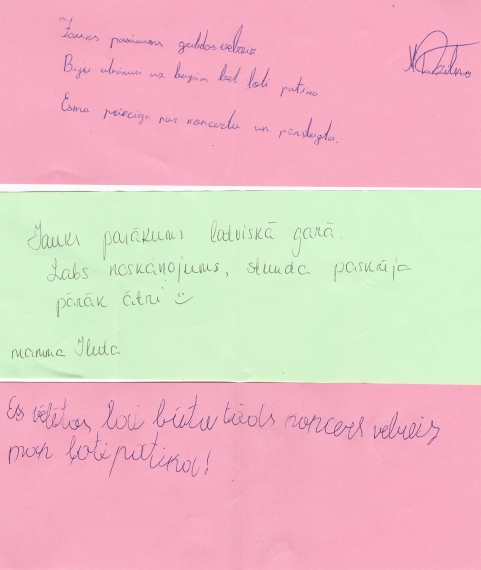 Jauks pasākums gadas
Biju atnākusi uz beigām bet ļoti patika
Esmu priecīga par koncertu un pārsteigta.
Jauks pasākums latviskā garā.
Labs noskaņojums, stunda paskrēja
pārāk ātri
mamma Iluta
Es vēlētos, lai būtu tāds koncers velreiz
man ļoti patika!